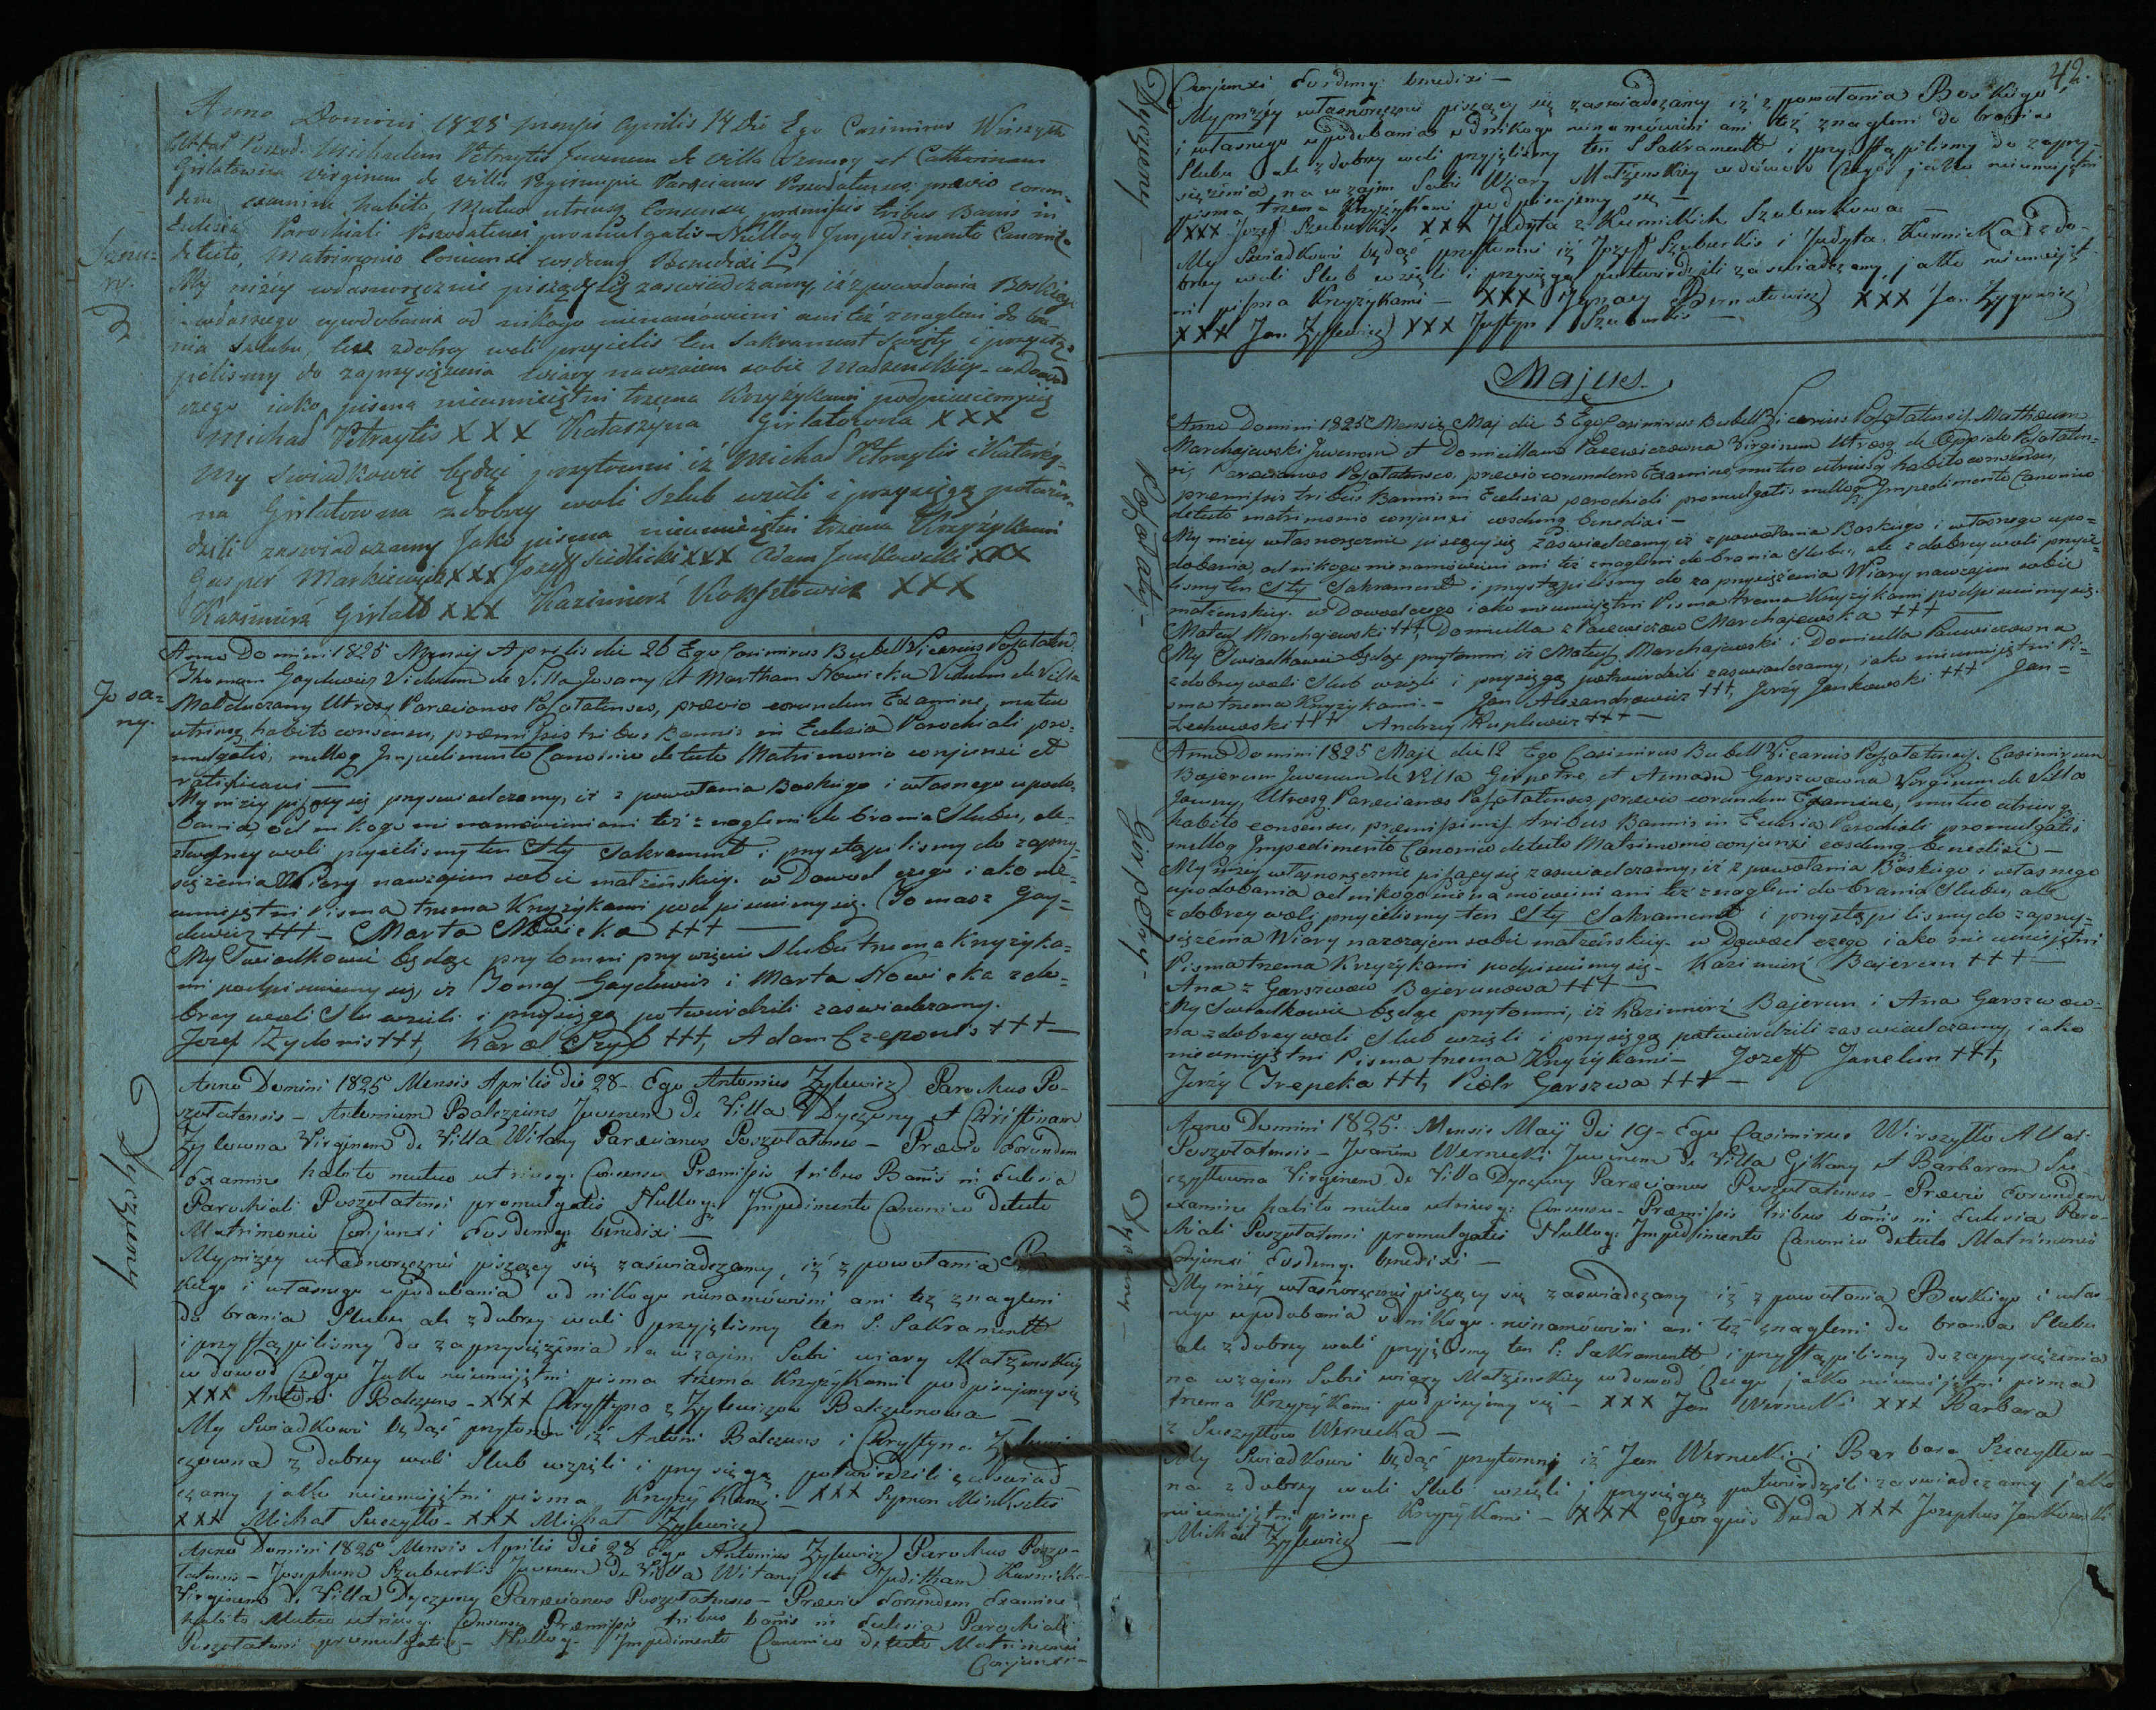 Anno Domini 1825 mensis Aprilis 14 die Ego Casimirus Wirszytt
Altar Poszod. Michaelem Petraytis Juvenem de villa Sznury et Catherinam
Girlatowna Virginem de Villa Pogirnupie Paraecianos Poszodatenses, praevio eorun-
dem examine habito Mutuo utriusq Consensu praemissis tribus Banis in
Ecclesia Parochiali Poszodatensi promulgatis - Nulloq Impedimento Canonico
detecto, Matrimonio Coniunxi eosdemq Benedixi
Sznu-
ry.
My niżey własnoręcznie piszący się zaświadczamy, iż z powodania Boskiego
i własnego upodobania od nikogo nienamówieni ani też znagleni do bra-
nia Szlubu, lecz z dobrey woli przyielis ten Sakrament Swięty i przystą-
pilismy do zaprzysiężenia wiary nawzaiem sobie Madzenskiey - w Dowod
czego iako pisma nieumieiętni trzema Krzyżykami podpisuiemysię
Michał Petraytis XXX Katarzyna Girlatowna XXX
My Swiadkowie będąc przytomni iż Michał Petraytis i Katarzy-
na Girlatowna z dobrey woli szlub wzieli i przysięgą potwier-
dzili zaświadczamy Jako pisma nieumieiętni trzema Krzyżykami
Gasper Markiewicz XXX Jozeff Siedlicki XXX Adam Jankowski XXX
Kazimierz Girlatt XXX Kazimierz XXX
Josa-
ny.
Anno Domini 1825 Mensis Aprilis die 26 Ego Casimirus Bubell Vicarius Poszołaten.
Thomam Gaydewicz Viduum de Villa Josany et Martham Nowicka Viduam de Villa
Małduczany Utrosq Paraecianos Poszołatenses, praevio eorundem Examine, mutuo
utriusq habito consensu, praemissis tribus Bannis in Ecclesia Parochiali pro-
mulgatis, nulloq Impedimento Canonico detecto Matrimonio conjunxi et
ratificavi —
My niżey piszący się przyswiadczamy, iż z powołania Boskiego i własnego upodo-
bania od nikogo nie namowieni ani też znagleni do brania Slubu, ale
z dobrey woli przyielismy ten Sty Sakrament i przystąpilismy do zaprzy-
siężenia Wiary nawzajem sobie małżeńskiey. w Dowod czego iako nie-
umiejętni Pisma trzema Krzyżykami podpisuiemy się. Tomasz Gay-
dewicz +++ — Marta Nowicka +++ —
My Swiadkowie będąc przytomni przy wzięciu Slubu trzema Krzyżyka-
mi podpisuiemy się, iż Tomasz Gaydewicz i Marta Nowicka z do-
brey woli Slub wzieli i przysięgą potwierdzili zaswiadczamy.
Jozef Zydonis +++, Karol Szyl +++, Adam Czeponis +++ —
Dyczuny —
Anno Domini 1825 Mensis Aprilis Die 28 - Ego Antonius Zylewicz Parochus Po-
szołatensis - Antonium Balczuns Juvenem de Villa Dyczuny et Christinam
Zylowna Virginem de Villa Witany Paraecianos Poszołatenses - Praevio Eorundem
Examine habito mutuo utriusq. Consensu Praemissis tribus Banis in Eclesia
Parochiali Poszołatensi promulgatis Nulloq. Impedimento Canonico Detecto
Matrimonio Conjunxi Eosdemq. benedixi —
My niżey własnoręcznie piszący się zaświadczamy, iż z powołania Bos-
kiego i własnego upodobania od nikogo nienamówieni ani też znagleni
do brania Slubu ale z dobrey woli przyjęlismy ten S. Sakramentt
i przystąpilismy do zaprzysiężenia na wzajem Sobie wiary Małżenskiey
w dowod Czego Jako nieumiejętni pisma trzema Krzyżykami podpisujemy się
XXX Antoni Balczuns - XXX Chrystyna z Zylewiczow Balczunowa —
My Swiadkowie będąc przytomni iż Antoni Balczuns i Chrystyna Zylewi-
czowna z dobrey woli Slub wzięli i przysięgą potwierdzili zaświad-
czamy jako nieumiejętni pisma Krzyżykami - XXX Symon Minksztis
XXX Michał Suczyłło - XXX Michał Zylewicz
Anno Domini 1825 Mensis Aprilis Die 28 Ego Antonius Zylewicz Parochus Poszo-
łatensis - Josephum Szuburkis Juvenem De Villa Witany et Juditham Kurnicka
Virginem de Villa Dyczuny Paraecianos Poszołatenses - Praevio Eorundem Examine
habito Mutuo utriusq. Consensu Praemissis tribus banis in Eclesia Parochiali
Poszołatensi promulgatis - Nulloq. Impedimento Canonico Detecto Matrimonio
Conjunxi -
42.
Dyczuny —
Conjunxi Eosdemq. benedixi —
My niżey własnoręcznie piszący się zaświadczamy iż z powołania Boskiego
i własnego upodobania od nikogo nienamówieni ani też znagleni do brania
Slubu ale z dobrey woli przyjęlismy ten S Sakramentt i przystąpilismy do zaprzy-
siężenia na wzajem Sobie Wiary Małżenskiey w dowód Czego jako nieumiejętni
pisma trzema Krzyżykami podpisujemy się —
XXX Jozeff Szuburkis XXX Judyta z Kurnickich Szuburkowa —
My Swiadkowie będąc przytomni iż Jozeff Szuburkis i Judyta Kurnicka z do-
brey woli Slub wzięli i przysięgą potwierdzili zaswiadczamy jako nieumiejęt-
ni pisma Krzyżykami - XXX Ignacy Bernatowicz XXX Jan Zygowicz
XXX Jan Zylewicz XXX Justyn Szuburkis —
Majus.
Poszołaty. —
Anno Domini 1825 Mensis Maj die 5 Ego Casimirus Bubell Vicarius Poszołatensis. Mathaeum
Marchajewski Juvenem et Domicellam Pacewiczowna Virginem Utrosq de Oppido Poszołaten-
si, Paraecianos Poszołatenses, praevio eorundem Examine, mutuo utriusq habito consensu,
praemissis tribus Bannis in Ecclesia parochiali promulgatis nulloq Impedimento Canonico
detecto matrimonio conjunxi eosdemq benedixi —
My niżey własnoręcznie piszący się zaswiadczamy iż z powołania Boskiego i własnego upo-
dobania, od nikogo nie namówieni ani też znagleni do brania Slubu, ale z dobrey woli przyie-
lismy ten Sty Sakrament i przystąpilismy do zaprzysiężenia Wiary nawzajem sobie
małżenskiey. w Dowod czego iako nieumiejętni Pisma trzema Krzyżykami podpisuiemy się.
Mateusz Marchajewski +++, Domicella z Pacewiczow Marchajewska +++ —
My Swiadkowie będąc przytomni, iż Mateusz Marchajewski i Domicella Pacewiczowna
z dobrey woli Slub wzięli i przysięgą potwierdzili zaswiadczamy, iako nieumiejętni Pi-
sma trzema Krzyżykami. - Jan Alexandrowicz +++, Jerży Jankowski +++ Jan
Lechowski +++ Andrzey Kuplewicz +++ —
Girpetry —
Anno Domini 1825 Maji die 12 Ego Casimirus Bubell Vicarius Poszołatensis. Casimirum
Bajerun Juvenem de Villa Girpetrie, et Annam Garszwowna Virginem de Villa
Jawny, Utrosq Paraecianos Poszołatenses praevio eorundem Examine, mutuo utriusq
habito consensu, praemissis tribus Bannis in Ecclesia Parochiali promulgatis
nulloq Impedimento Canonico detecto Matrimonio conjunxi eosdemq benedixi —
My niżey własnoręcznie piszący się zaswiadczamy, iż z powołania Boskiego i własnego
upodobania od nikogo nie na mówieni ani też znagleni do brania Slubu, ale
z dobrey woli przyielismy ten Sty Sakrament i przystąpilismy do zaprzy-
siężenia Wiary nawzajem sobie małżeńskiey. w Dowod czego iako nie umiejętni
Pisma trzema Krzyżykami podpisuiemy się - Kazimierz Bajerun +++ —
Ana z Garszwow Bajerunowa +++ —
My Swiadkowie będąc przytomni, iż Kazimierz Bajerun i Ana Garszwow-
na z dobrey woli Slub wzięli i przysięgą potwierdzili zaswiadczamy, iako
nieumiejętni Pisma trzema Krzyżykami - Jozeff Janelun +++,
Jerży Trepeka +++, Piotr Garszwa +++ —
Dyczuny —
Anno Domini 1825. Mensis Maij Die 19 - Ego Casimirus Wirszyłło Altar.
Poszołatensis - Joanem Wernicki Juvenem de Villa Gikany et Barbaram Su-
czyłłowna Virginem de Villa Dyczuny Paraecianos Poszołatenses - Praevio Eorundem
examine habito mutuo utriusq. Consensu - Praemissis tribus banis in Eclesia Paro-
chiali Poszołatensi promulgatis Nulloq. Impedimento Canonico Detecto Matrimonio
Conjunxi Eosdemq. benedixi —
My niżey własnoręcznie piszący się zaswiadczamy iż z powołania Boskiego i włas-
nego upodobania od nikogo nienamówieni ani też znagleni do brania Slubu
ale z dobrey woli przyjęlismy ten S. Sakramentt i przystąpilismy do zaprzysiężenia
na wzajem Sobie wiary Małżenskiey w dowod Czego jako nieumiejętni pisma
trzema Krzyżykami podpisujemy się - XXX Jan Wernicki XXX Barbara
z Suczyłłow Wernicka —
My Swiadkowie będąc przytomni iż Jan Wernicki i Barbara Suczyłłow-
na z dobrey woli Slub wzięli i przysięgą potwierdzili zaswiadczamy jako
nieumiejętni pisma Krzyżykami - XXX Georgius Duda XXX Josephus Jankowski
Michał Zylewicz —